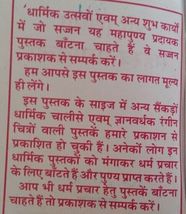 'धार्मिक उत्सवों एवम् अन्य शुभ कार्यों
में जो सज्जन यह महापुण्य प्रदायक
पुस्तक बाँटना चाहते हैं वे सज्जन
प्रकाशक से सम्पर्क करें।
हम आपसे इस पुस्तक का लागत मूल्य
ही लेंगे।
इस पुस्तक के साइज में अन्य सैंकड़ों
धार्मिक चालीसे एवम् ज्ञानवर्धक रंगीन
चित्रों वाली पुस्तकें हमारे प्रकाशन से
प्रकाशित हो चुकी हैं। अनेकों लोग इन
धार्मिक पुस्तकों को मंगाकर धर्म प्रचार
के लिए बाँटते हैं और पुण्य प्राप्त करते हैं।
आप भी धर्म प्रचार हेतु पुस्तकें बाँटना
चाहते हैं तो प्रकाशक से सम्पर्क करें।